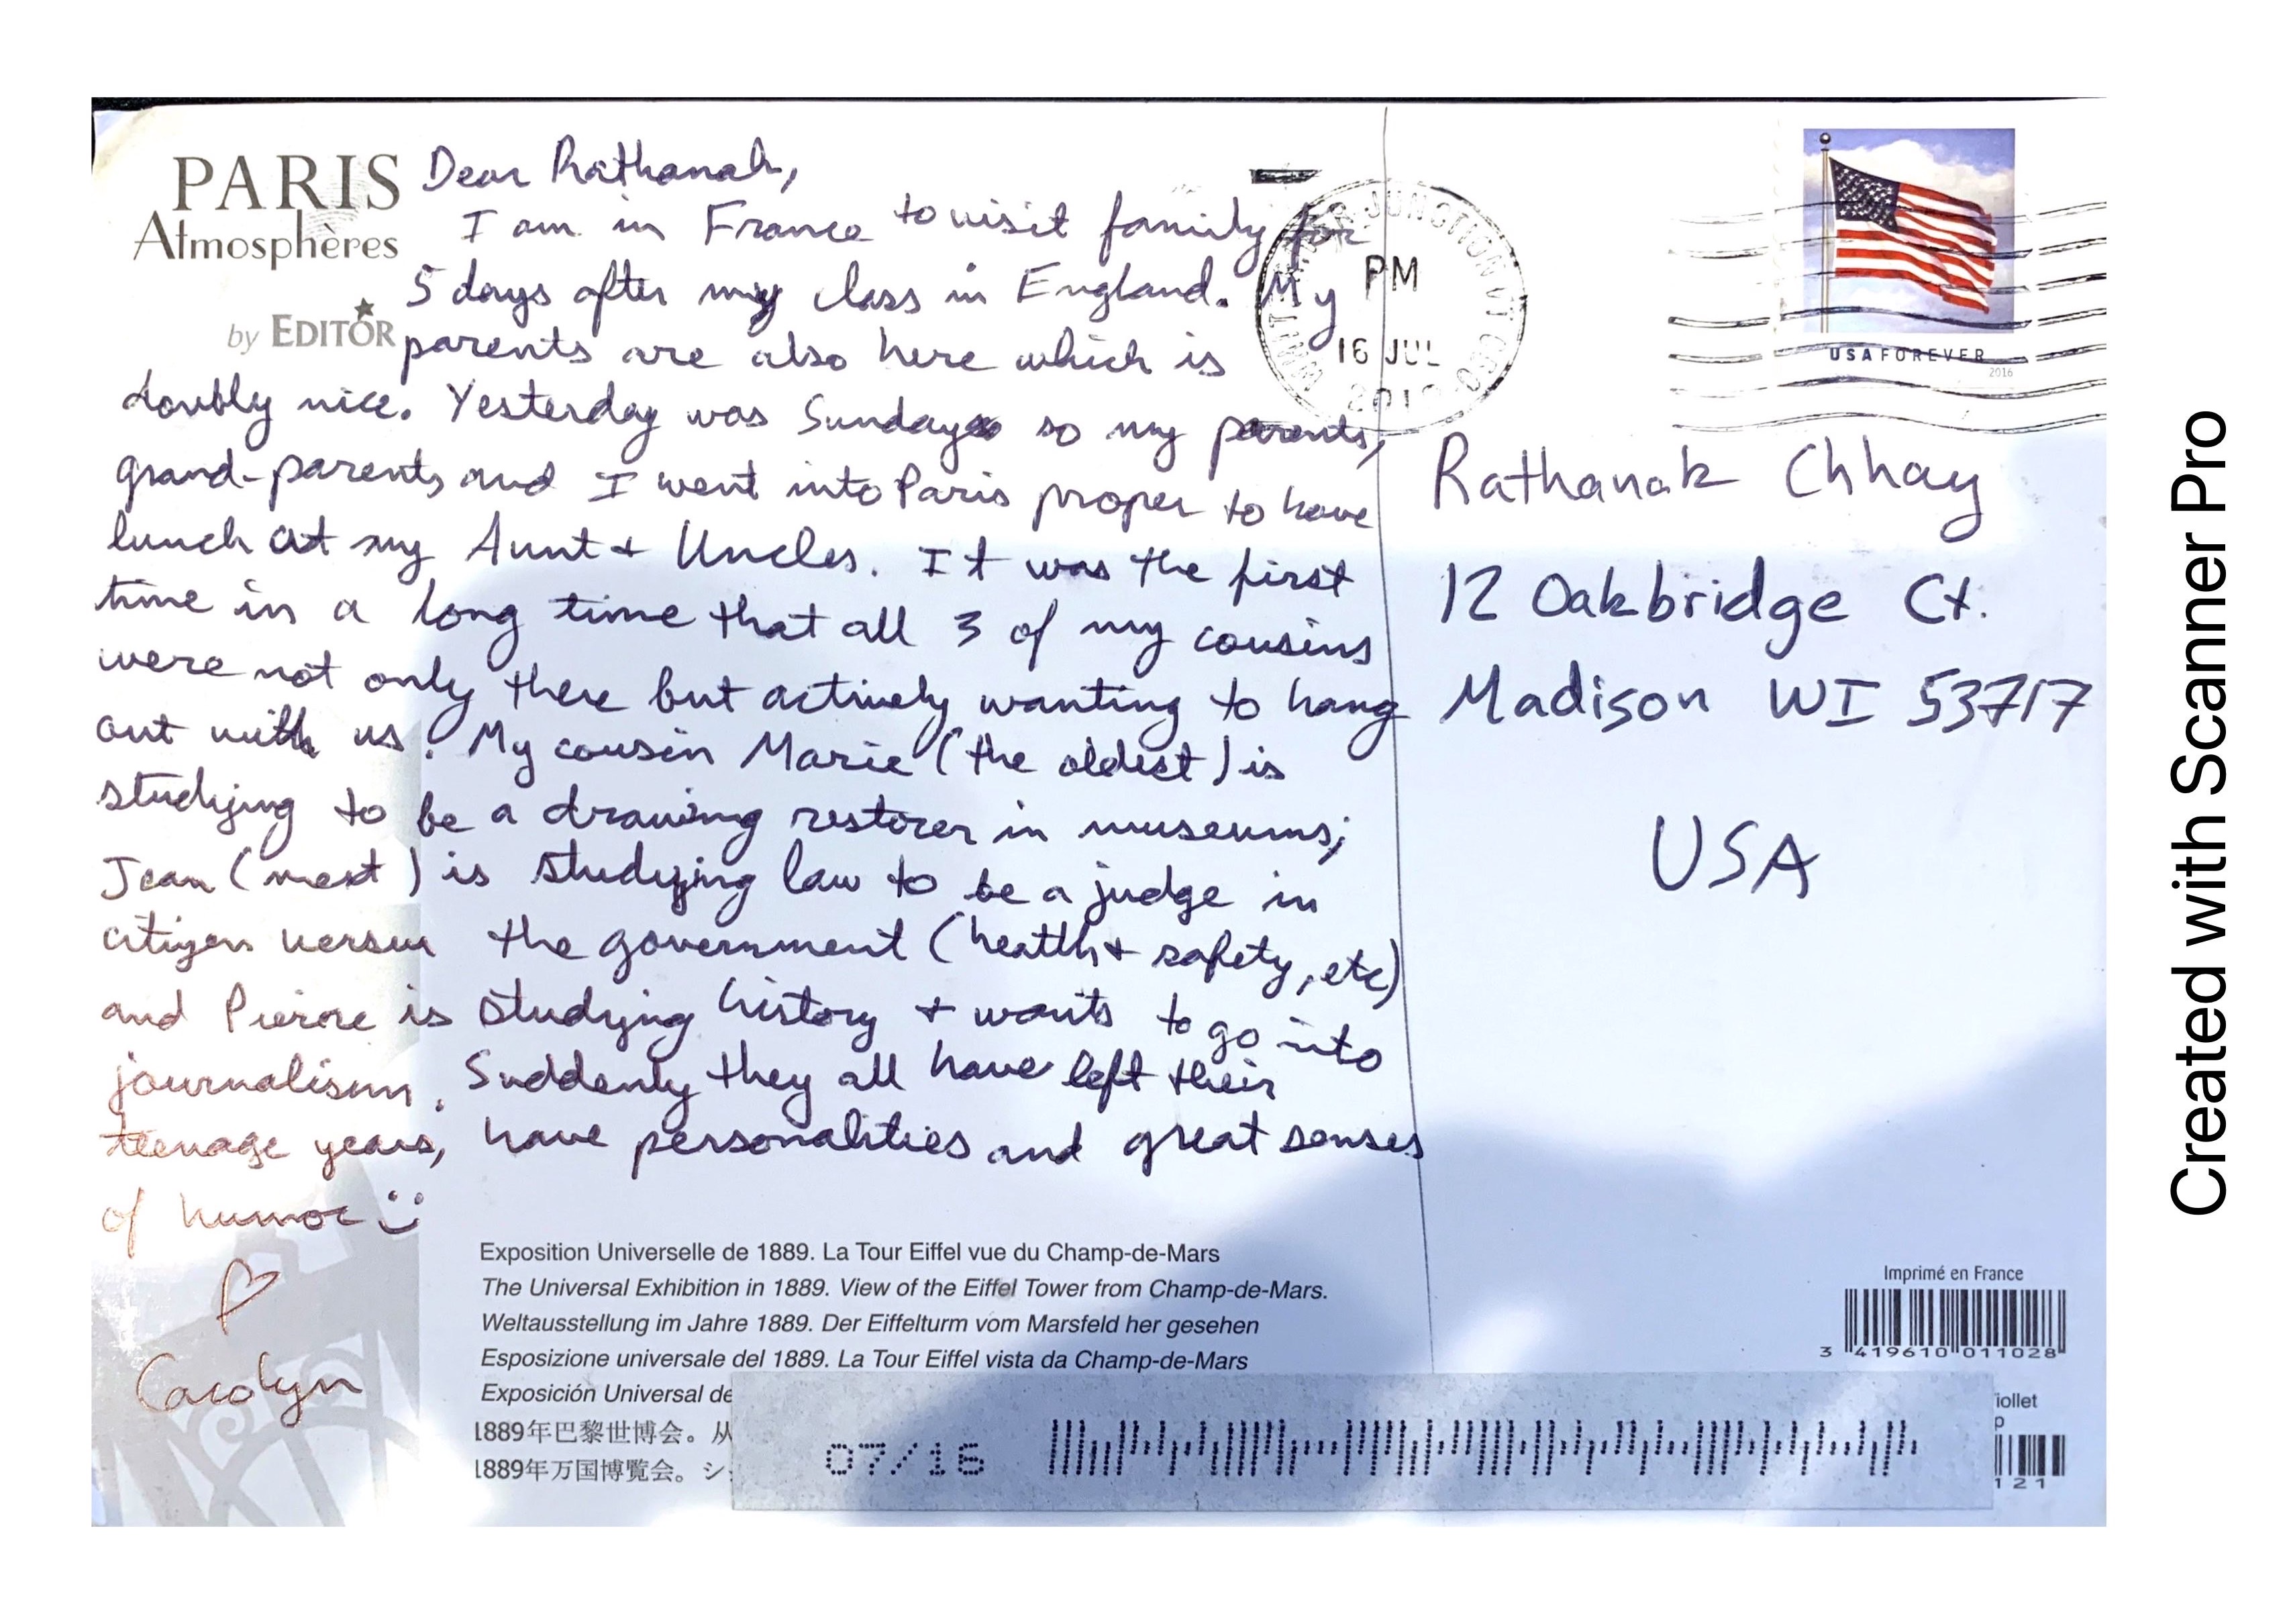 PARIS
Atmosphères
by EDITOR
Dear Rathanak,
I am in France to visit family for
5 days after my class in England. My
parents are also here which is
doubly nice. Yesterday was Sunday so my parents,
grand-parents and I went into Paris proper to have
lunch at my Aunt + Uncles. It was the first
time in a long time that all 3 of my cousins
were not only there but actively wanting to hang
out with us. My cousin Marie (the oldest) is
studying to be a drawing restorer in museums;
Jean (next) is studying law to be a judge in
citizen versus the government (health + safety, etc)
and Pierre is studying history + wants to go into
journalism. Suddenly they all have left their
teenage years, have personalities and great senses
of humor
Carolyn
JUNCTION VT
PM
16 JUL
USA FOREVER
2016
Rathanak Chhay
12 Oakbridge Ct.
Madison WI 53717
USA
Exposition Universelle de 1889. La Tour Eiffel vue du Champ-de-Mars
The Universal Exhibition in 1889. View of the Eiffel Tower from Champ-de-Mars.
Weltausstellung im Jahre 1889. Der Eiffelturm vom Marsfeld her gesehen
Esposizione universale del 1889. La Tour Eiffel vista da Champ-de-Mars
Exposición Universal de
1889年巴黎世博会。从
1889年万国博覧会。シ
Imprimé en France
3 419610 011028
iollet
p
121
07/16
Created with Scanner Pro